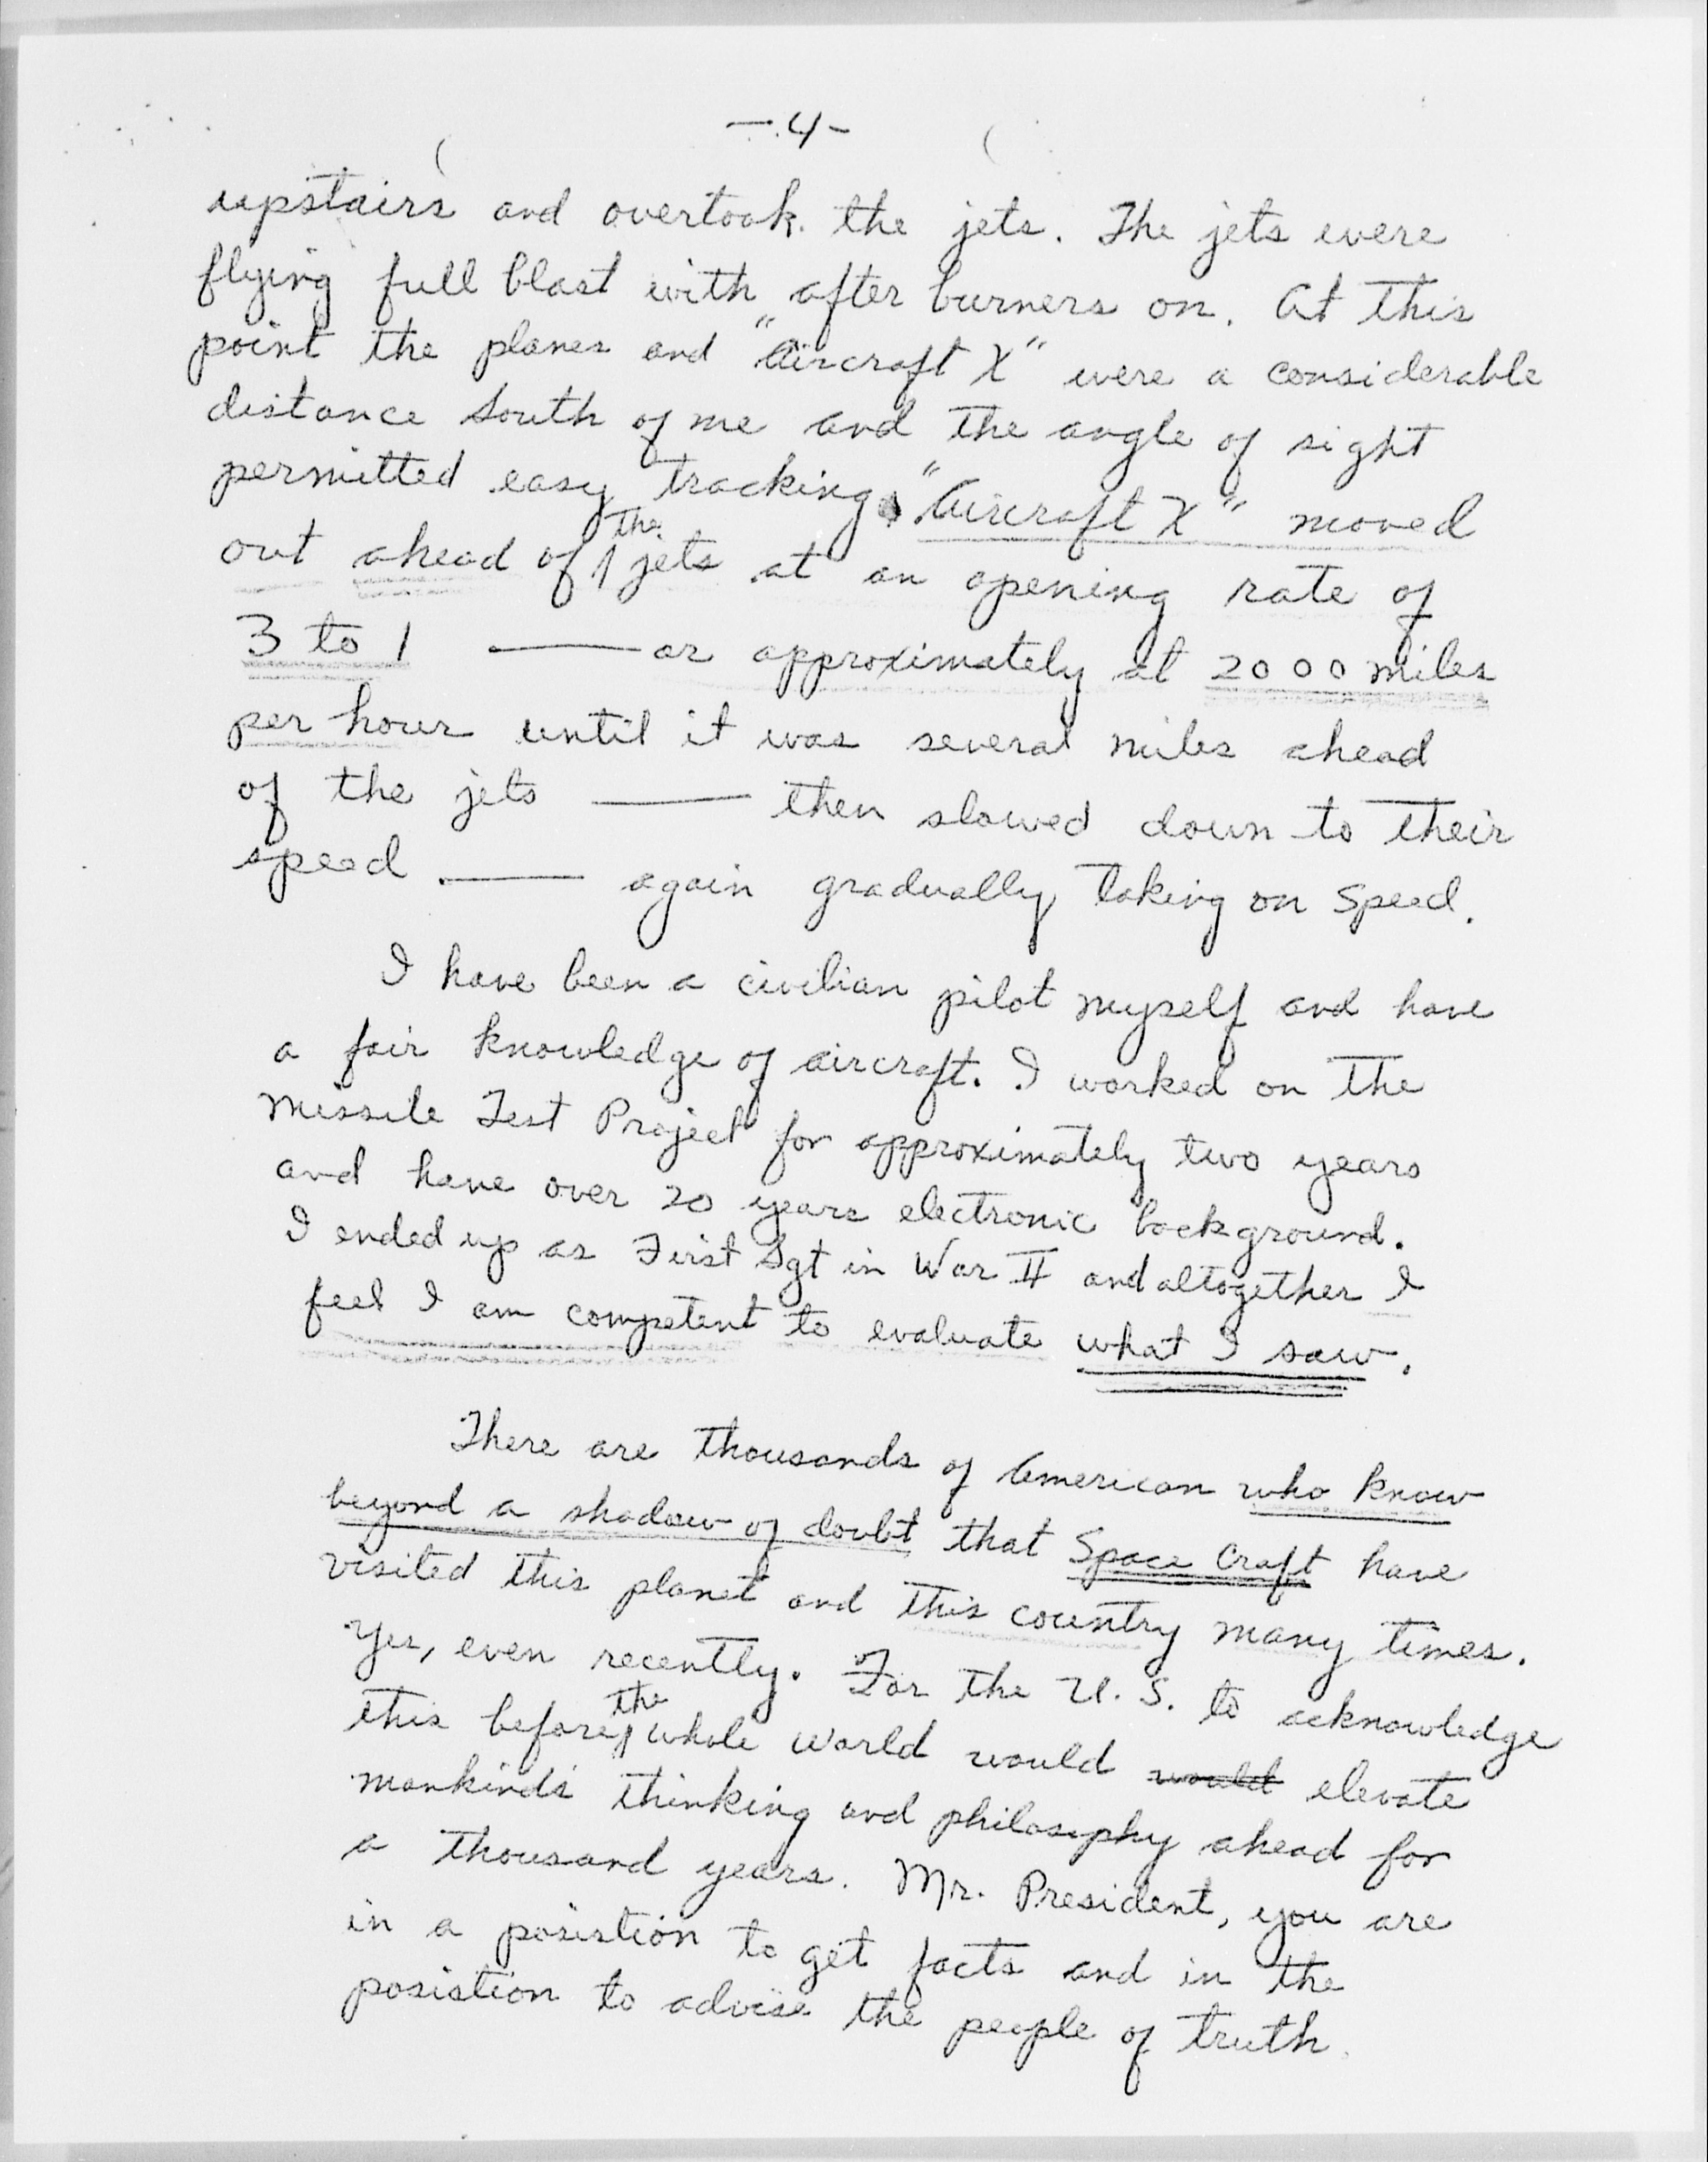 -4-
upstairs and overtook the jets. The jets were
flying full blast with after burners on. At this
point the planes and "Aircraft X" were a considerable
distance South of me and the angle of sight
permitted easy tracking. "Aircraft X" moved
out ahead of the jets at an opening rate of
3 to 1 — or approximately at 2000 miles
per hour until it was several miles ahead
of the jets — then slowed down to their
speed — again gradually taking on speed.
I have been a civilian pilot myself and have
a fair knowledge of aircraft. I worked on the
Missile Test Project for approximately two years
and have over 20 years electronic background.
I ended up as First Sgt in War II and altogether I
feel I am competent to evaluate what I saw.
There are thousands of American who know
beyond a shadow of doubt that Space Craft have
visited this planet and this country many times.
Yes, even recently. For the U.S. to acknowledge
this before the whole world would would elevate
mankinds' thinking and philosophy ahead for
a thousand years. Mr. President, you are
in a posistion to get facts and in the
posistion to advise the people of truth.